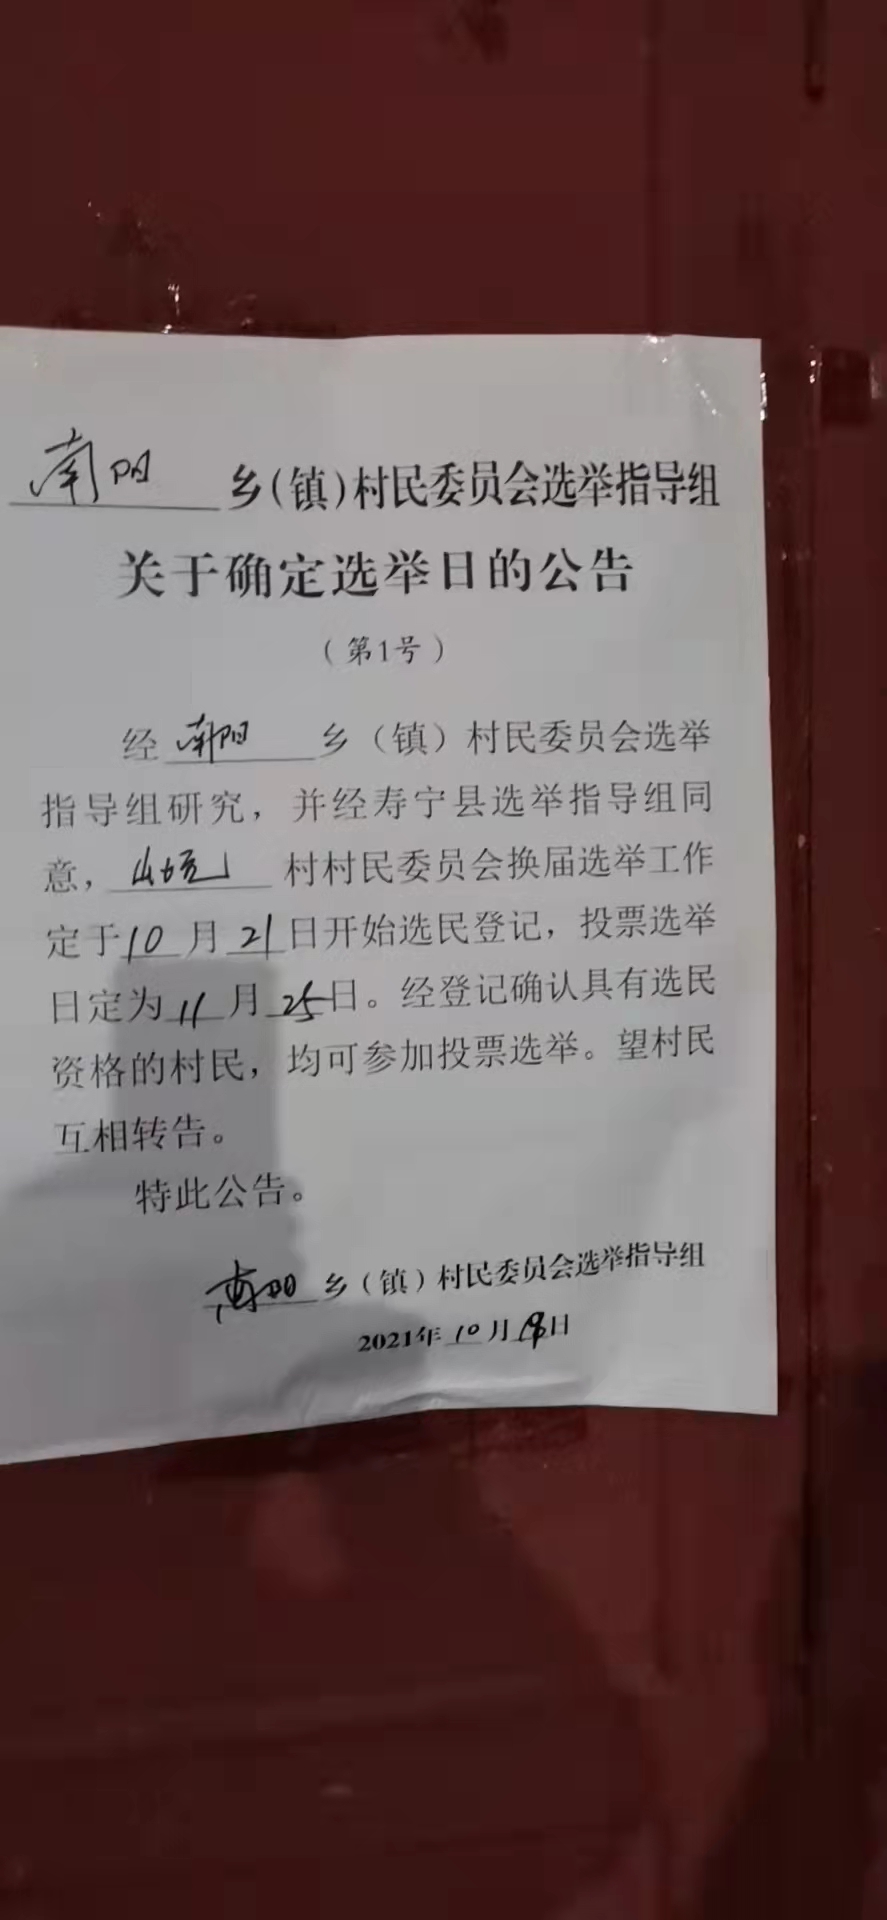 南阳乡(镇)村民委员会选举指导组
关于确定选举日的公告
(第1号)
经南阳乡(镇)村民委员会选举
指导组研究，并经寿宁县选举指导组同
意，村村民委员会换届选举工作
定于10月21日开始选民登记，投票选举
日定为11月25日。经登记确认具有选民
资格的村民，均可参加投票选举。望村民
互相转告。
特此公告。
南阳乡(镇)村民委员会选举指导组
2021年10月日